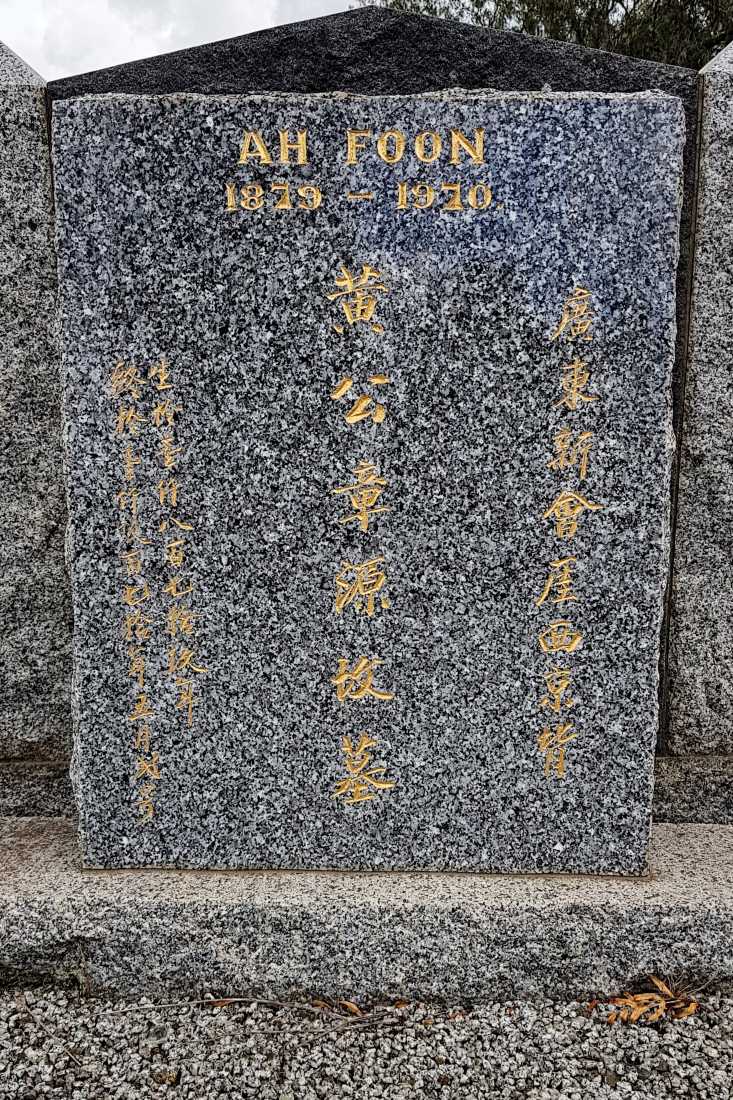 AH FOON
1879 - 1970.
廣東新會厓西京背
黃公章源故墓
生於壹仟八百七拾玖年
終於壹仟九百七拾年五月